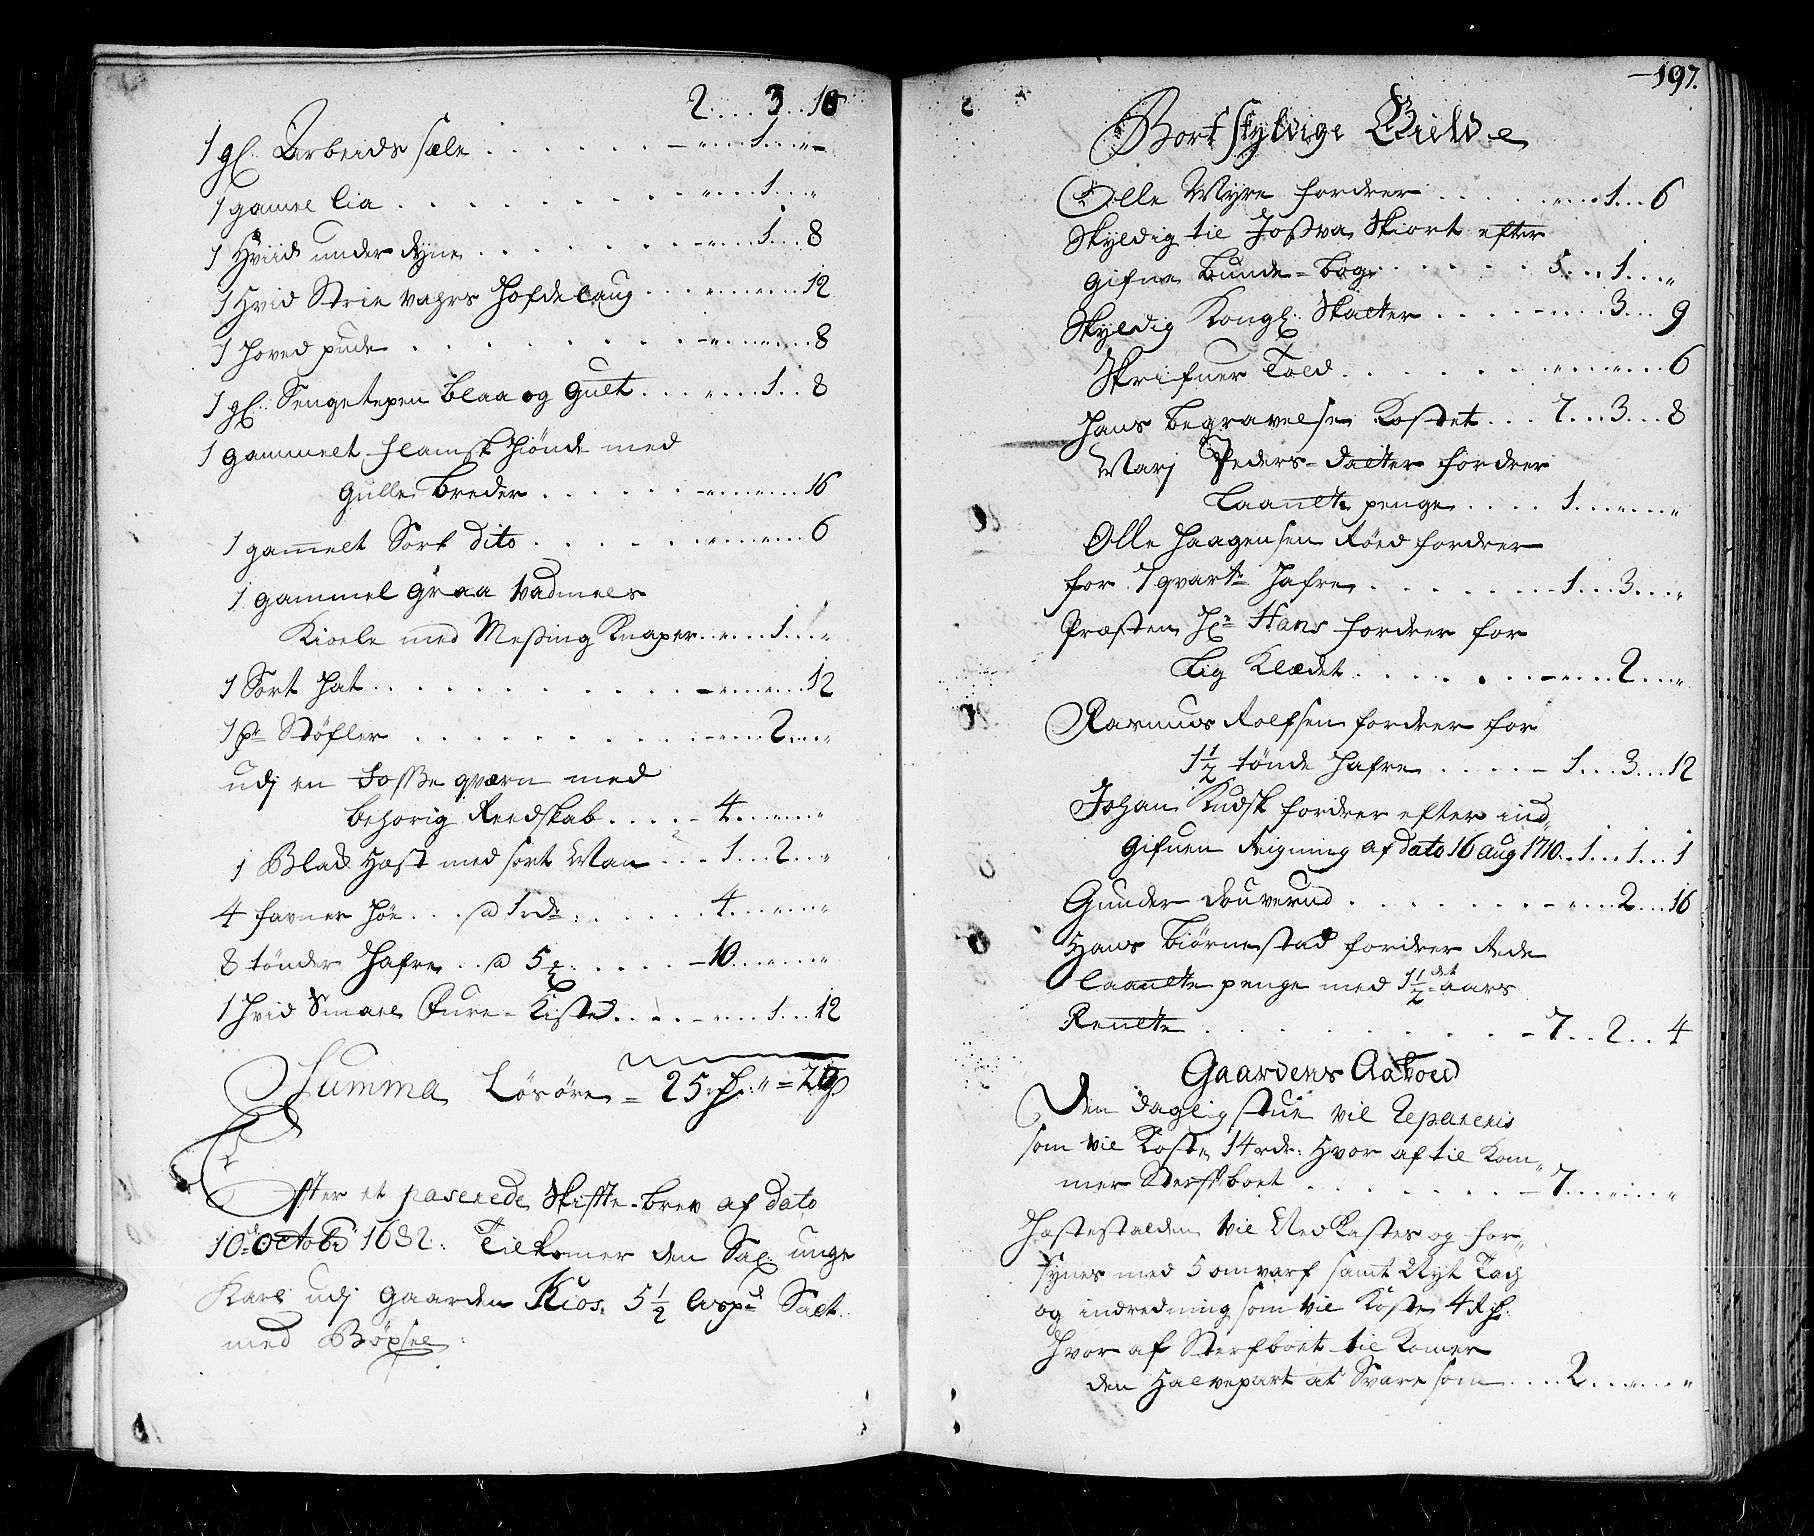 2....3..18
1 gl: Arbeids sæle . . . . . . -„....1...„-
1 gamel lia . . . . . . . . -„....1...„
1 Hviid under dyne . . . . . . -„....1...8
1 Hvid Strie vahrs Hofdelaug ...„.......12
1 Hoved pude . . . . . . . -„.......8
1 gl: Sengetepen blaa og Gult ...„....1..8
1 gammelt flamsk Hiønde med
Gulle breder . . . . . -„.......16
1 gammelt Sort dito . . . . . -„.......6
1 gammel Graa vadmels
Kiole med Messing Knaper..„....1....„
1 Sort Hat . . . . . . . . . -„.......12
1 pr Støfler . . . . . . . . -„....2....„
udj en Fosse qværn med
behørig Reedskab .... - 4...„....„
1 Blak Hæst med sort Man ... 1...2..„
4 favner Høe ... a 1 rdr: ..... 4...„....„
8 tønder Hafre .. a 5 . . . . . -10...„....„
1 Hvid Smael Fure-Kiste .. .. -„....1...12
Summa Løsøre = 25 rdr: „ = 20
Effter et paserede Skiffte-brev af dato
10de Octobr 1682: Tilkomer den Sal: unge
Karl udj Gaarden Kios. 5 1/2 lispd Salt
med Böxsel:
-197.
Bortskyldige Gield
Olle Myre fordrer . . . . „....1...6
Skyldig til Jossva Skiort efter
gifne bunde-bog . . . . . 5...1...„
Skyldig Kongl: Skatter . . . . -„....3...9
Skrifuer Told . . . . . . „.......6
Hans begravelse Kostet ... 7...3...8
Marj Peders-datter fordrer
Laante penge .... 1...„....„
Olle Haagensen Røed fordrer
for 7 qvartr Hafre . . . . . . -1...3....„
Præsten Hr Hans fordrer for
Lig Klædet . . . . . . -„....2....„
Rasmus Rolfsen fordrer for
1 1/2 tønde Hafre . . . . - 1...3...12
Johan Kudsk fordrer efter ind„
gifuen Reigning af dato 16 aug 1710..1...1...1
Gunder Douverud . . . . . . . -„....2...16
Hans Biørnestad fordrer Rede
laante penge med 1 1/2 det aars
Rente . . . . . . . . -7...2...4
Gaardens Aaboed
Den daglig stue vil Repareris
som vil Koste 14 rdr: Hvor af til Kom„
mer Sterfboet . . . . . . . -7...„....„
Hæstestalden vil Ned Kastes og for„
synes med 5 omvarf samt Nyt Tach
og indredning som vil Koste 4 Rdr:
Hvor af Sterfboet til Komer
den Halvepart at Svare som ....2...„....„